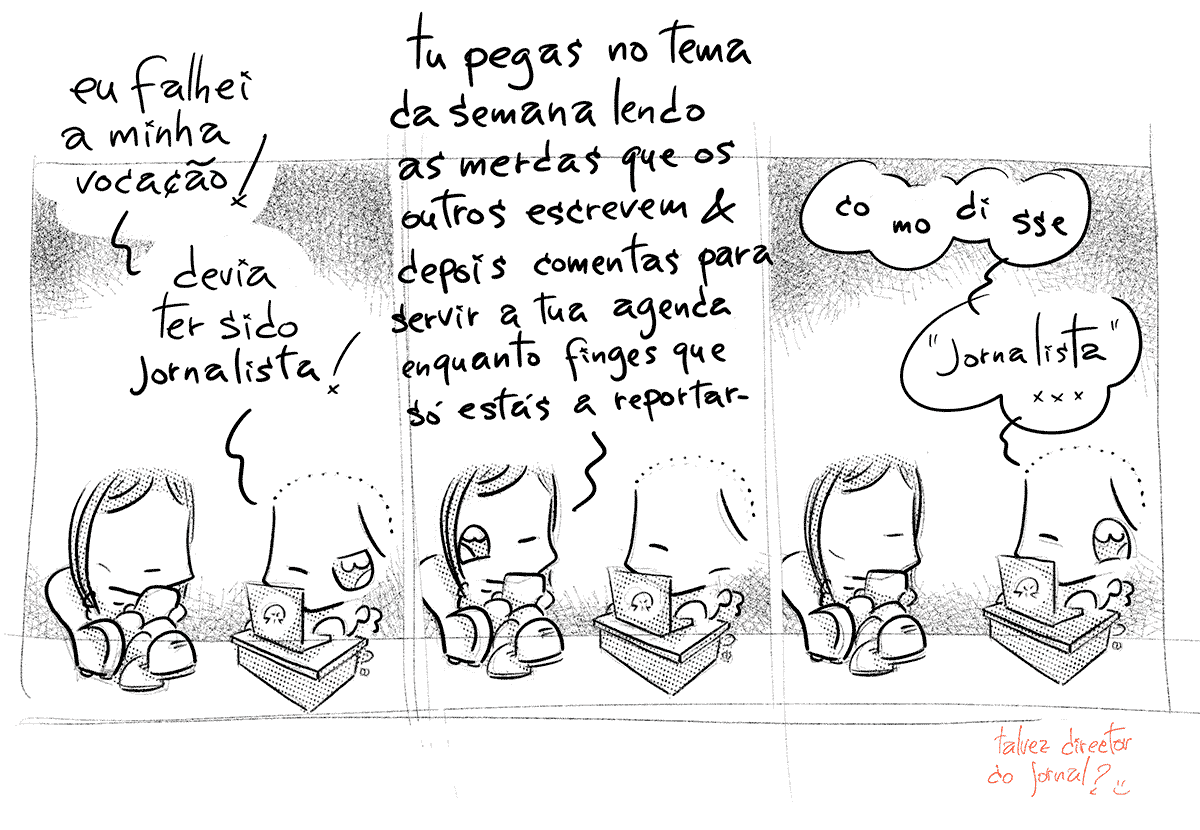 eu falhei
a minha
vocação!
devia
ter sido
jornalista!
tu pegas no tema
da semana lendo
as merdas que os
outros escrevem &
depois comentas para
servir a tua agenda
enquanto finges que
só estás a reportar-
co mo di sse
"jornalista"
x x x
talvez director
do jornal? :)